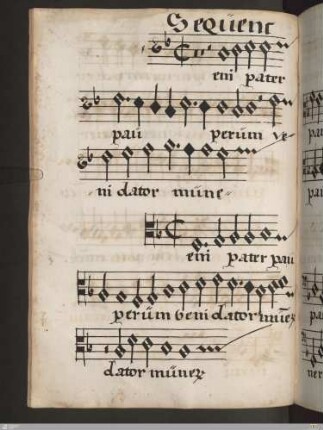 Sequenc
eni pater
pau perum ve
ni dator mune
eni pater pau
perum veni dator muneꝝ
dator muneꝝ